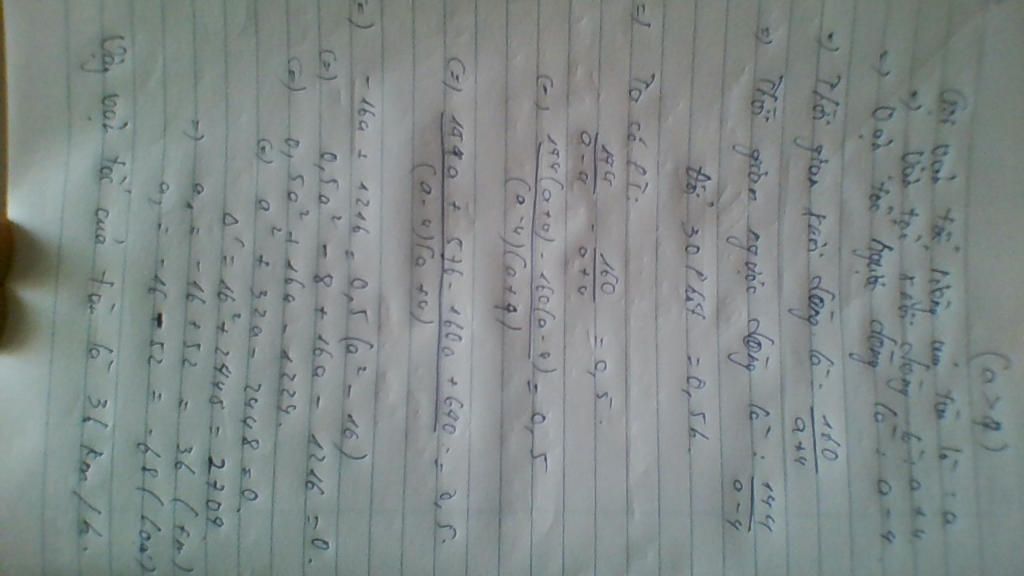 Gọi vận tốc riêng của tàu là = a (a > 4)
=) Vận tốc xuôi dòng là : a + 4
=) Vận tốc ngược dòng là : a - 4
=) Thời gian xuôi dòng là = 160/a+4
=) Thời gian ngược dòng là : 144/a-4
Đổi 30 phút = 0,5h
=) Ta có PT.
144/a-4 - 160/a+4 = 0,5.
(=) 144(a+4) - 160(a-4)/(a-4)(a+4) = 0,5
(=) 144a + 576 - 160a + 640/(a-4)(a+4) = 0,5.
(=) -16a + 1216 = 0,5 (a² - 16)
(=) 0,5a² - 8 + 16a - 1216 = 0.
(=) 0,5a² + 16a - 1224.
(=) a² + 32a - 2448 = 0
Δ' = 16² + 2448 = 2704
=) a₁ = -16 + 52 = 36 (tm)
a₂ = -16 - 52 = -68 (loại)
Vậy vận tốc của tàu là 36 km/h.